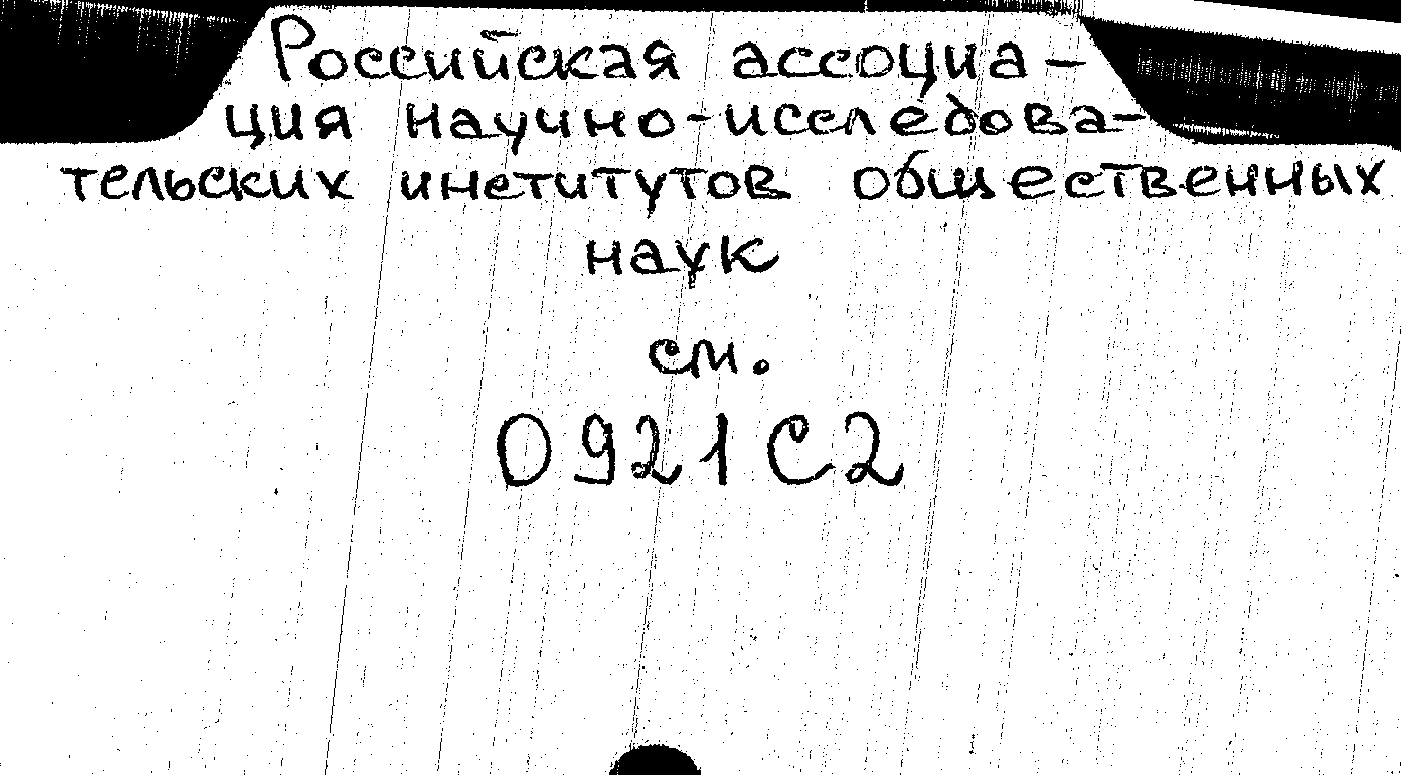 Российская ассоциа-
ция научно-исследова-
тельских институтов общественных
наук
см.
0921С2